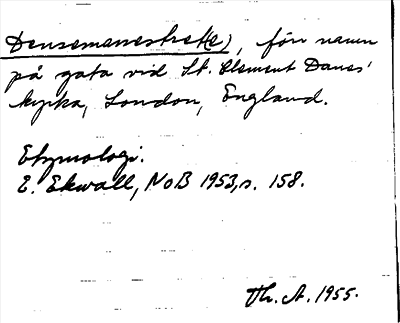 Densemanestrete), förr namn
på gata vid St. Clement Danes'
kyrka, London, England.
Etymologi.
E. Ekwall, NoB 1953, s. 158.
Th. A. 1955.